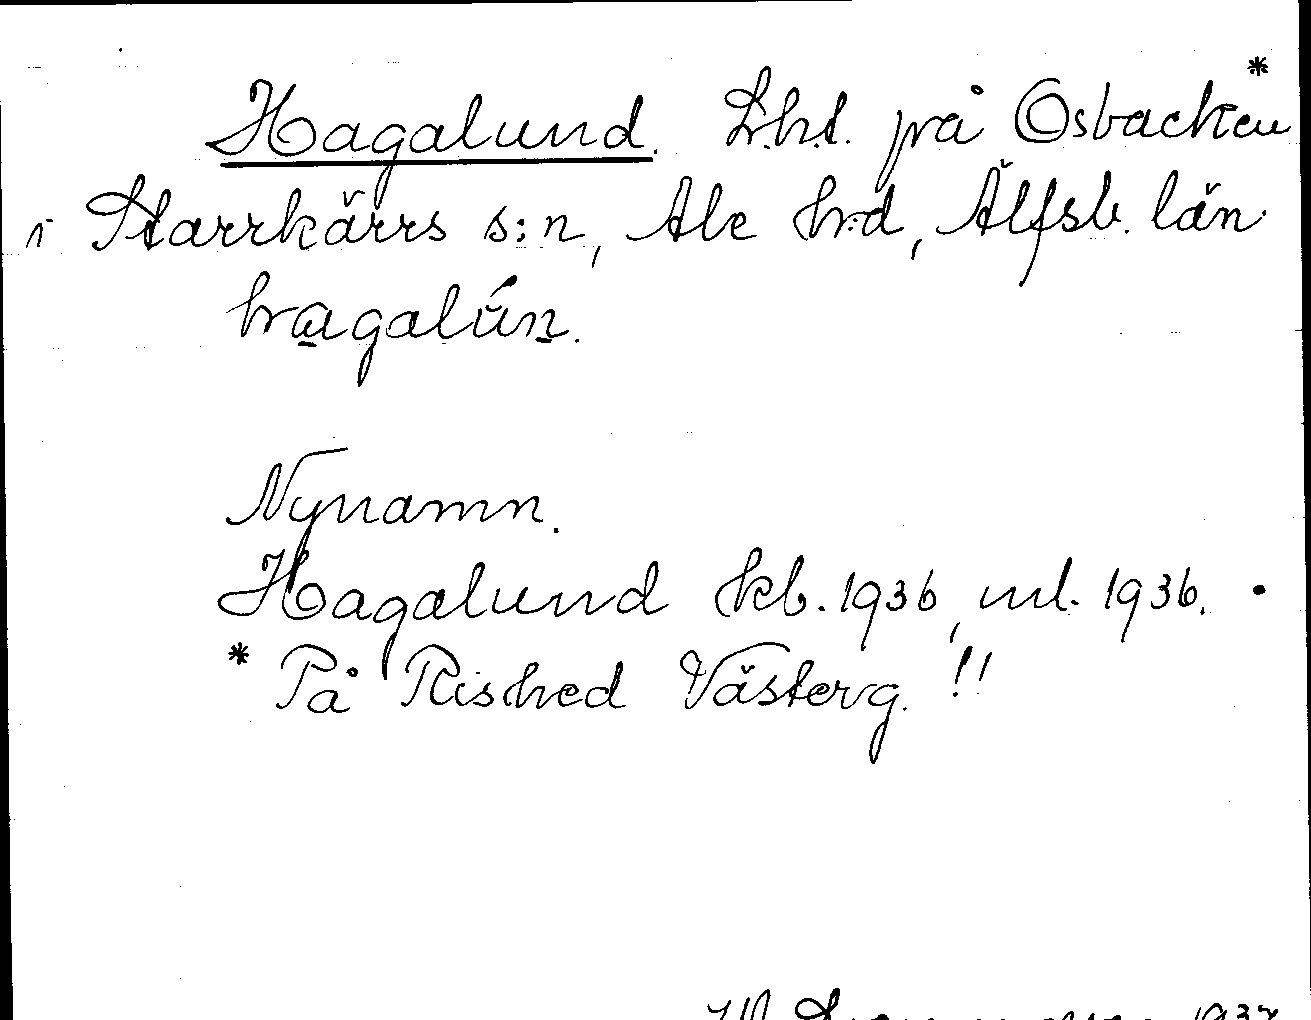 Hagalund. Lht. på Osbacken*
i Starrkärrs s:n, Ale h:d, Älfsb. län
hagalún.
Nynamn.
Hagalund kb. 1936, ml. 1936.
* På Rished Västerg. !!
1937